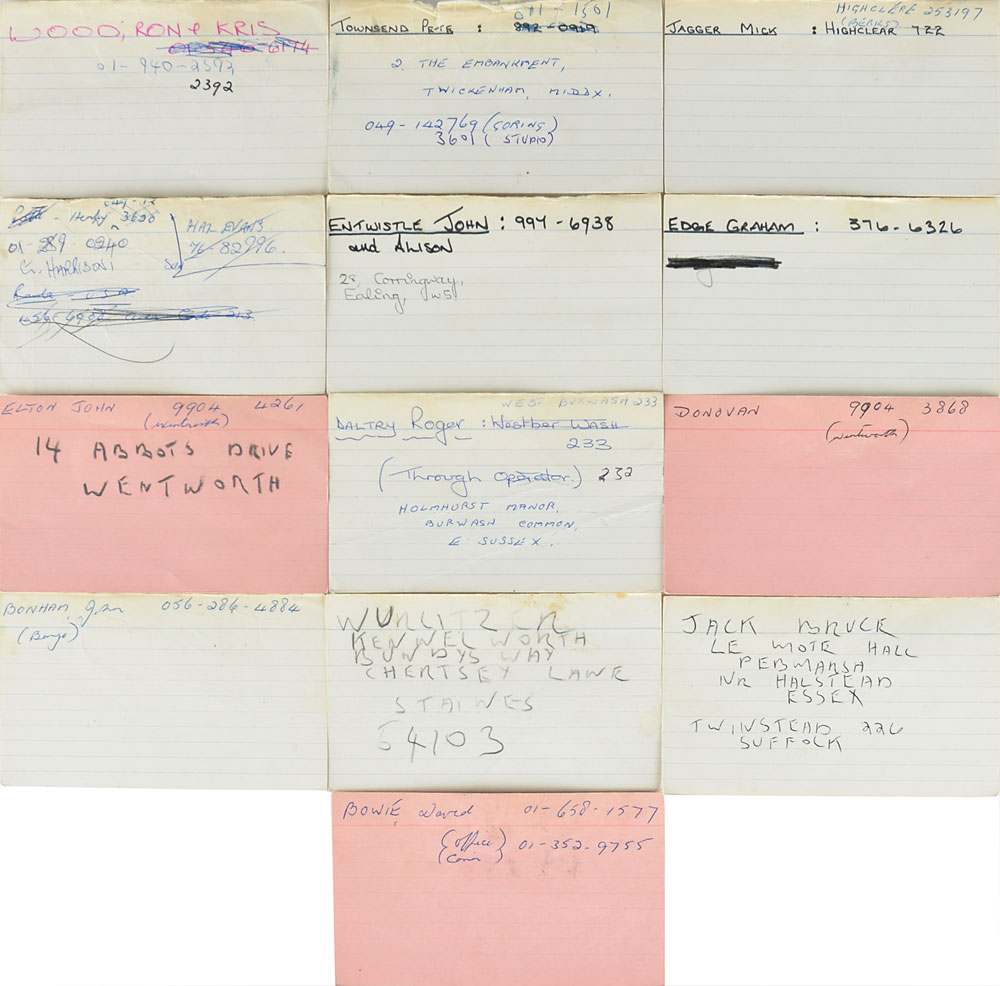 WOOD, RON & KRIS
6174
01-940-2392
2392
TOWNSEND PETE :
2. THE EMBANKMENT,
TWICKENHAM, MIDDX.
049-142769 (GORING)
3601 (STUDIO)
HIGHCLERE 253197
(BERKS)
JAGGER MICK : HIGHCLEAR 722
- Henley 3636
01-
G. HARRISON
MAL EVANS
76-82996.
ENTWISTLE JOHN : 997-6938
and ALISON
28, Corringway,
Ealing, W5
EDGE GRAHAM : 376-6326
ELTON JOHN 9904 4261
(Wentworth)
14 ABBOTS DRIVE
WENTWORTH
WEST BURWASH 233
DALTRY Roger : Westber WASH
233
(Through Operator.) 232
HOLMHURST MANOR,
BURWASH COMMON,
E. SUSSEX.
DONOVAN 9904 3868
(Wentworth)
BONHAM 056-286-4884
WURLITZER
KENNELWORTH
BUNDYS WAY
CHERTSEY LANE
STAINES
54103
JACK BRUCE
LE MOTE HALL
PEBMARSH
NR HALSTEAD
ESSEX
TWINSTEAD 226
SUFFOLK
BOWIE, David 01-658-1577
(office) 01-352-9755